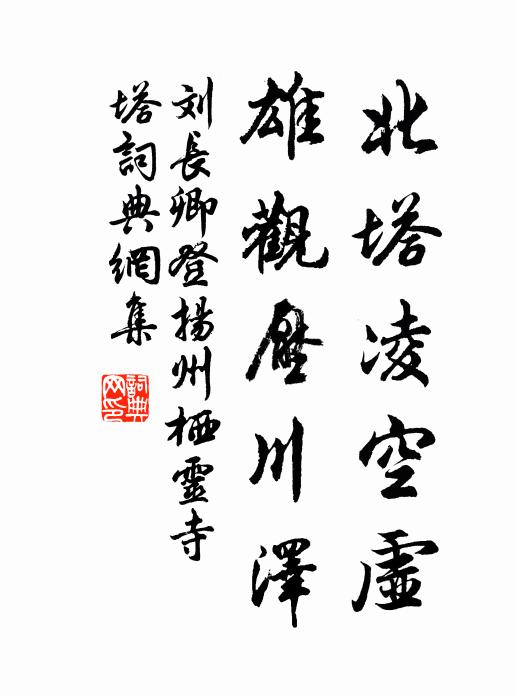 北塔凌空虛
雄觀壓川澤
刘長卿登揚州栖靈寺
塔詞典網集
詞典网印